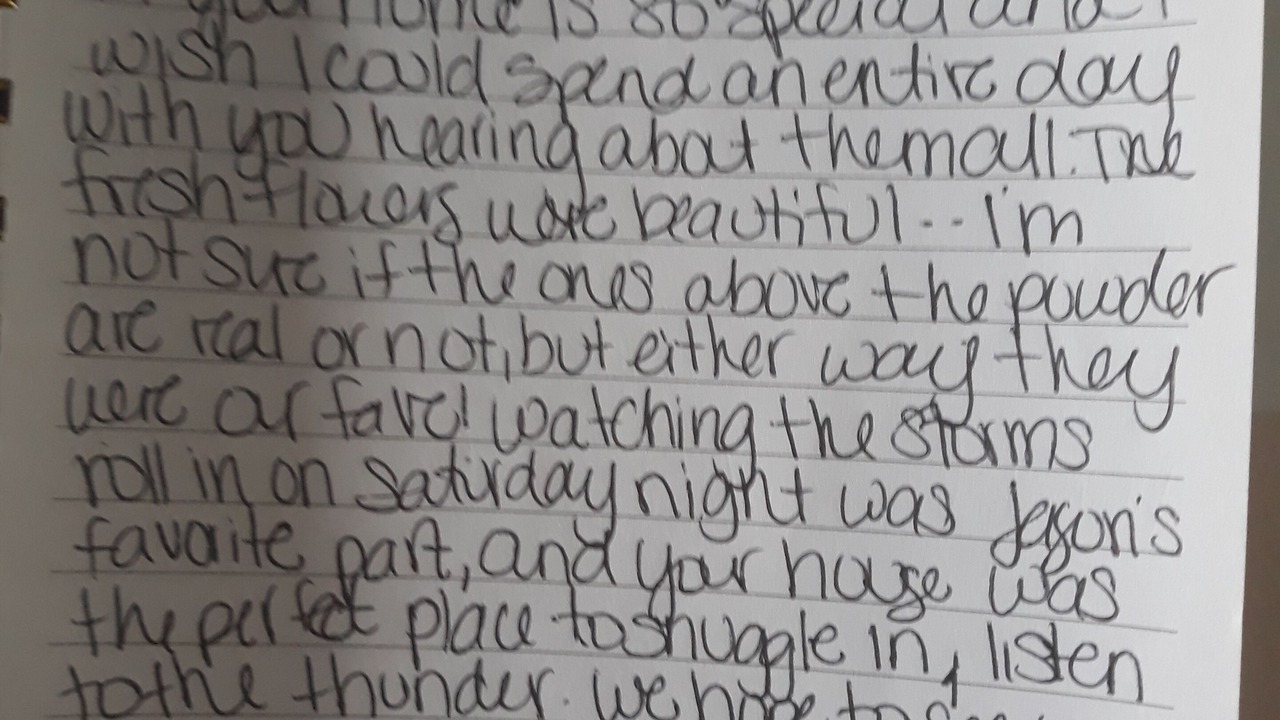 your home is so special and I
wish I could spend an entire day
with you hearing about them all. The
fresh flowers were beautiful... I'm
not sure if the ones above the powder
are real or not, but either way they
were our fave! Watching the storms
roll in on Saturday night was Jason's
favorite part, and your house was
the perfect place to snuggle in, listen
to the thunder. We hope to